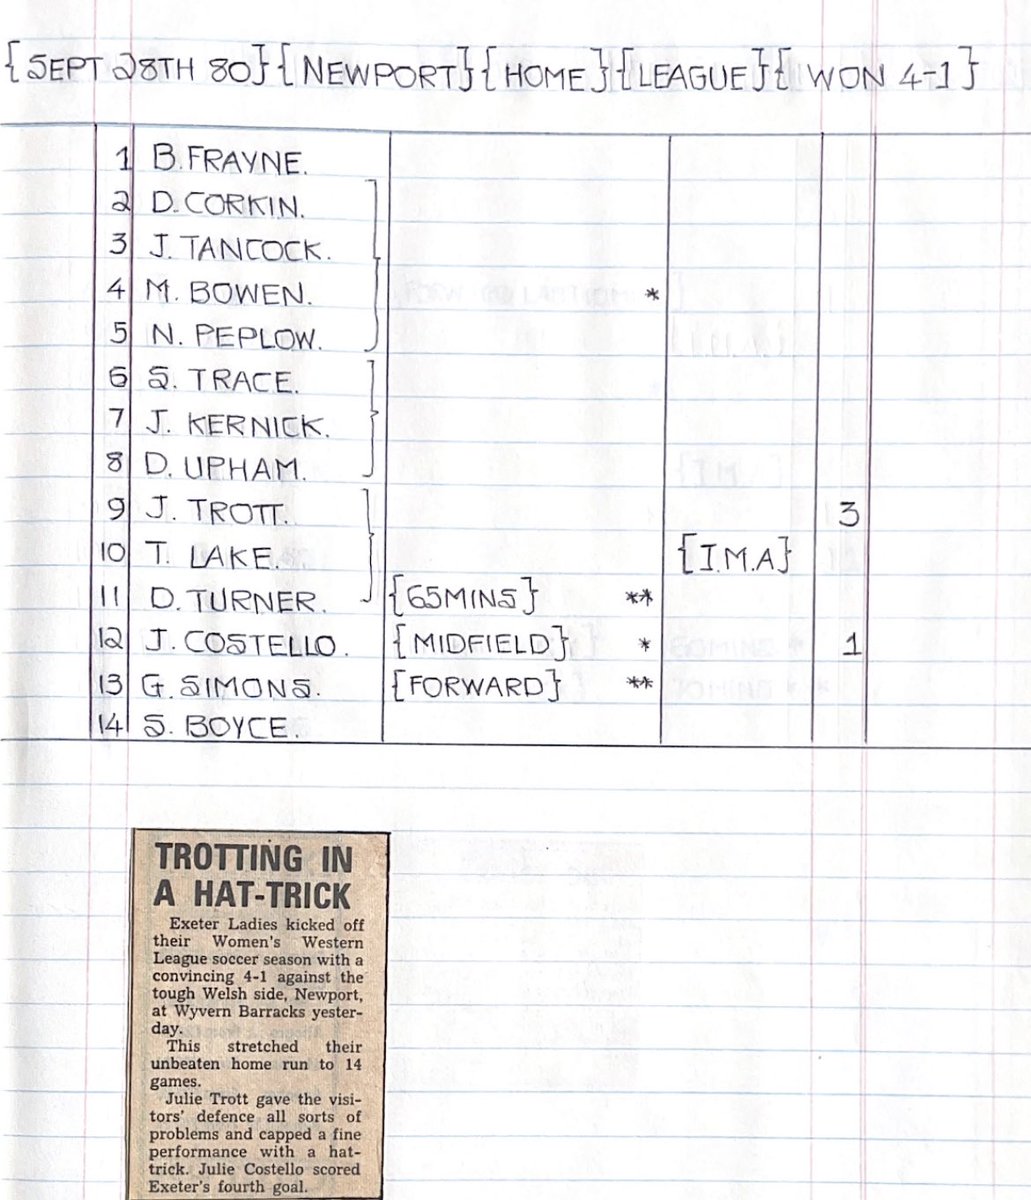 {SEPT 28TH 80}{NEWPORT}{HOME}{LEAGUE}{ WON 4-1}
1 B.FRAYNE.
2 D.CORKIN.
3 J. TANCOCK.
4 M. BOWEN. *
5 N. PEPLOW.
6 S. TRACE.
7 J. KERNICK.
8 D. UPHAM.
9 J. TROTT. 3
10 T. LAKE. {I.M.A}
11 D. TURNER. {65MINS} **
12 J. COSTELLO. {MIDFIELD} * 1
13 G. SIMONS. {FORWARD} **
14 S. BOYCE.
TROTTING IN
A HAT-TRICK
Exeter Ladies kicked off
their Women's Western
League soccer season with a
convincing 4-1 against the
tough Welsh side, Newport,
at Wyvern Barracks yester-
day.
This stretched their
unbeaten home run to 14
games.
Julie Trott gave the visi-
tors' defence all sorts of
problems and capped a fine
performance with a hat-
trick. Julie Costello scored
Exeter's fourth goal.